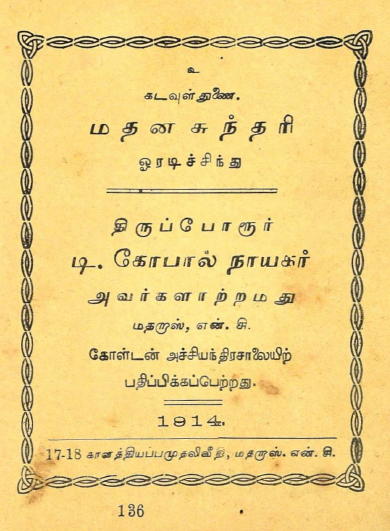 உ
கடவுள் துணை.
மதனசுந்தரி
ஓரடிச்சிந்து
திருப்போரூர்
டி. கோபால் நாயகர்
அவர்களாற்றமது
மதறாஸ், என். சி.
கோள்டன் அச்சியந்திரசாலையிற்
பதிப்பிக்கப்பெற்றது.
1914.
17-18 காளத்தியப்பமுதலிவீதி, மதறாஸ். என். சி.
136